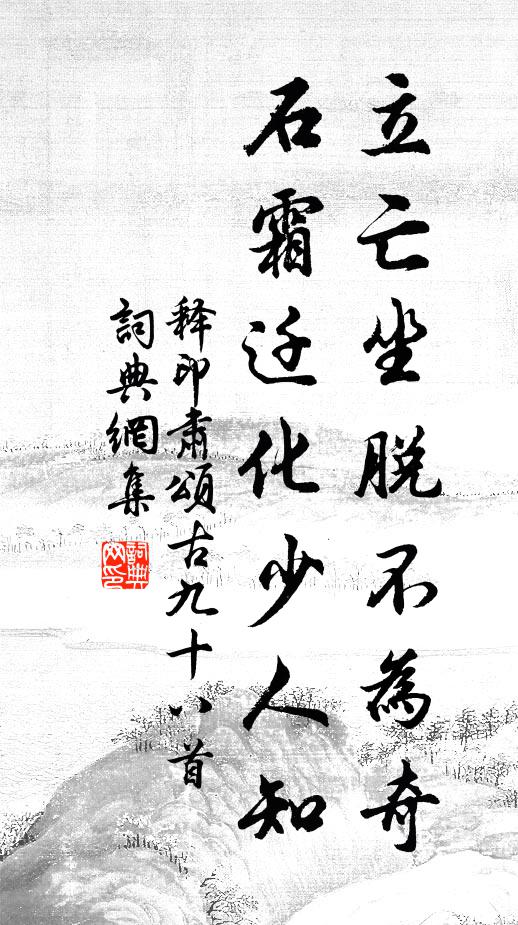 立亡坐脱不為奇
石霜迁化少人知
释印肃頌古九十八首
詞典網集
詞典
网印